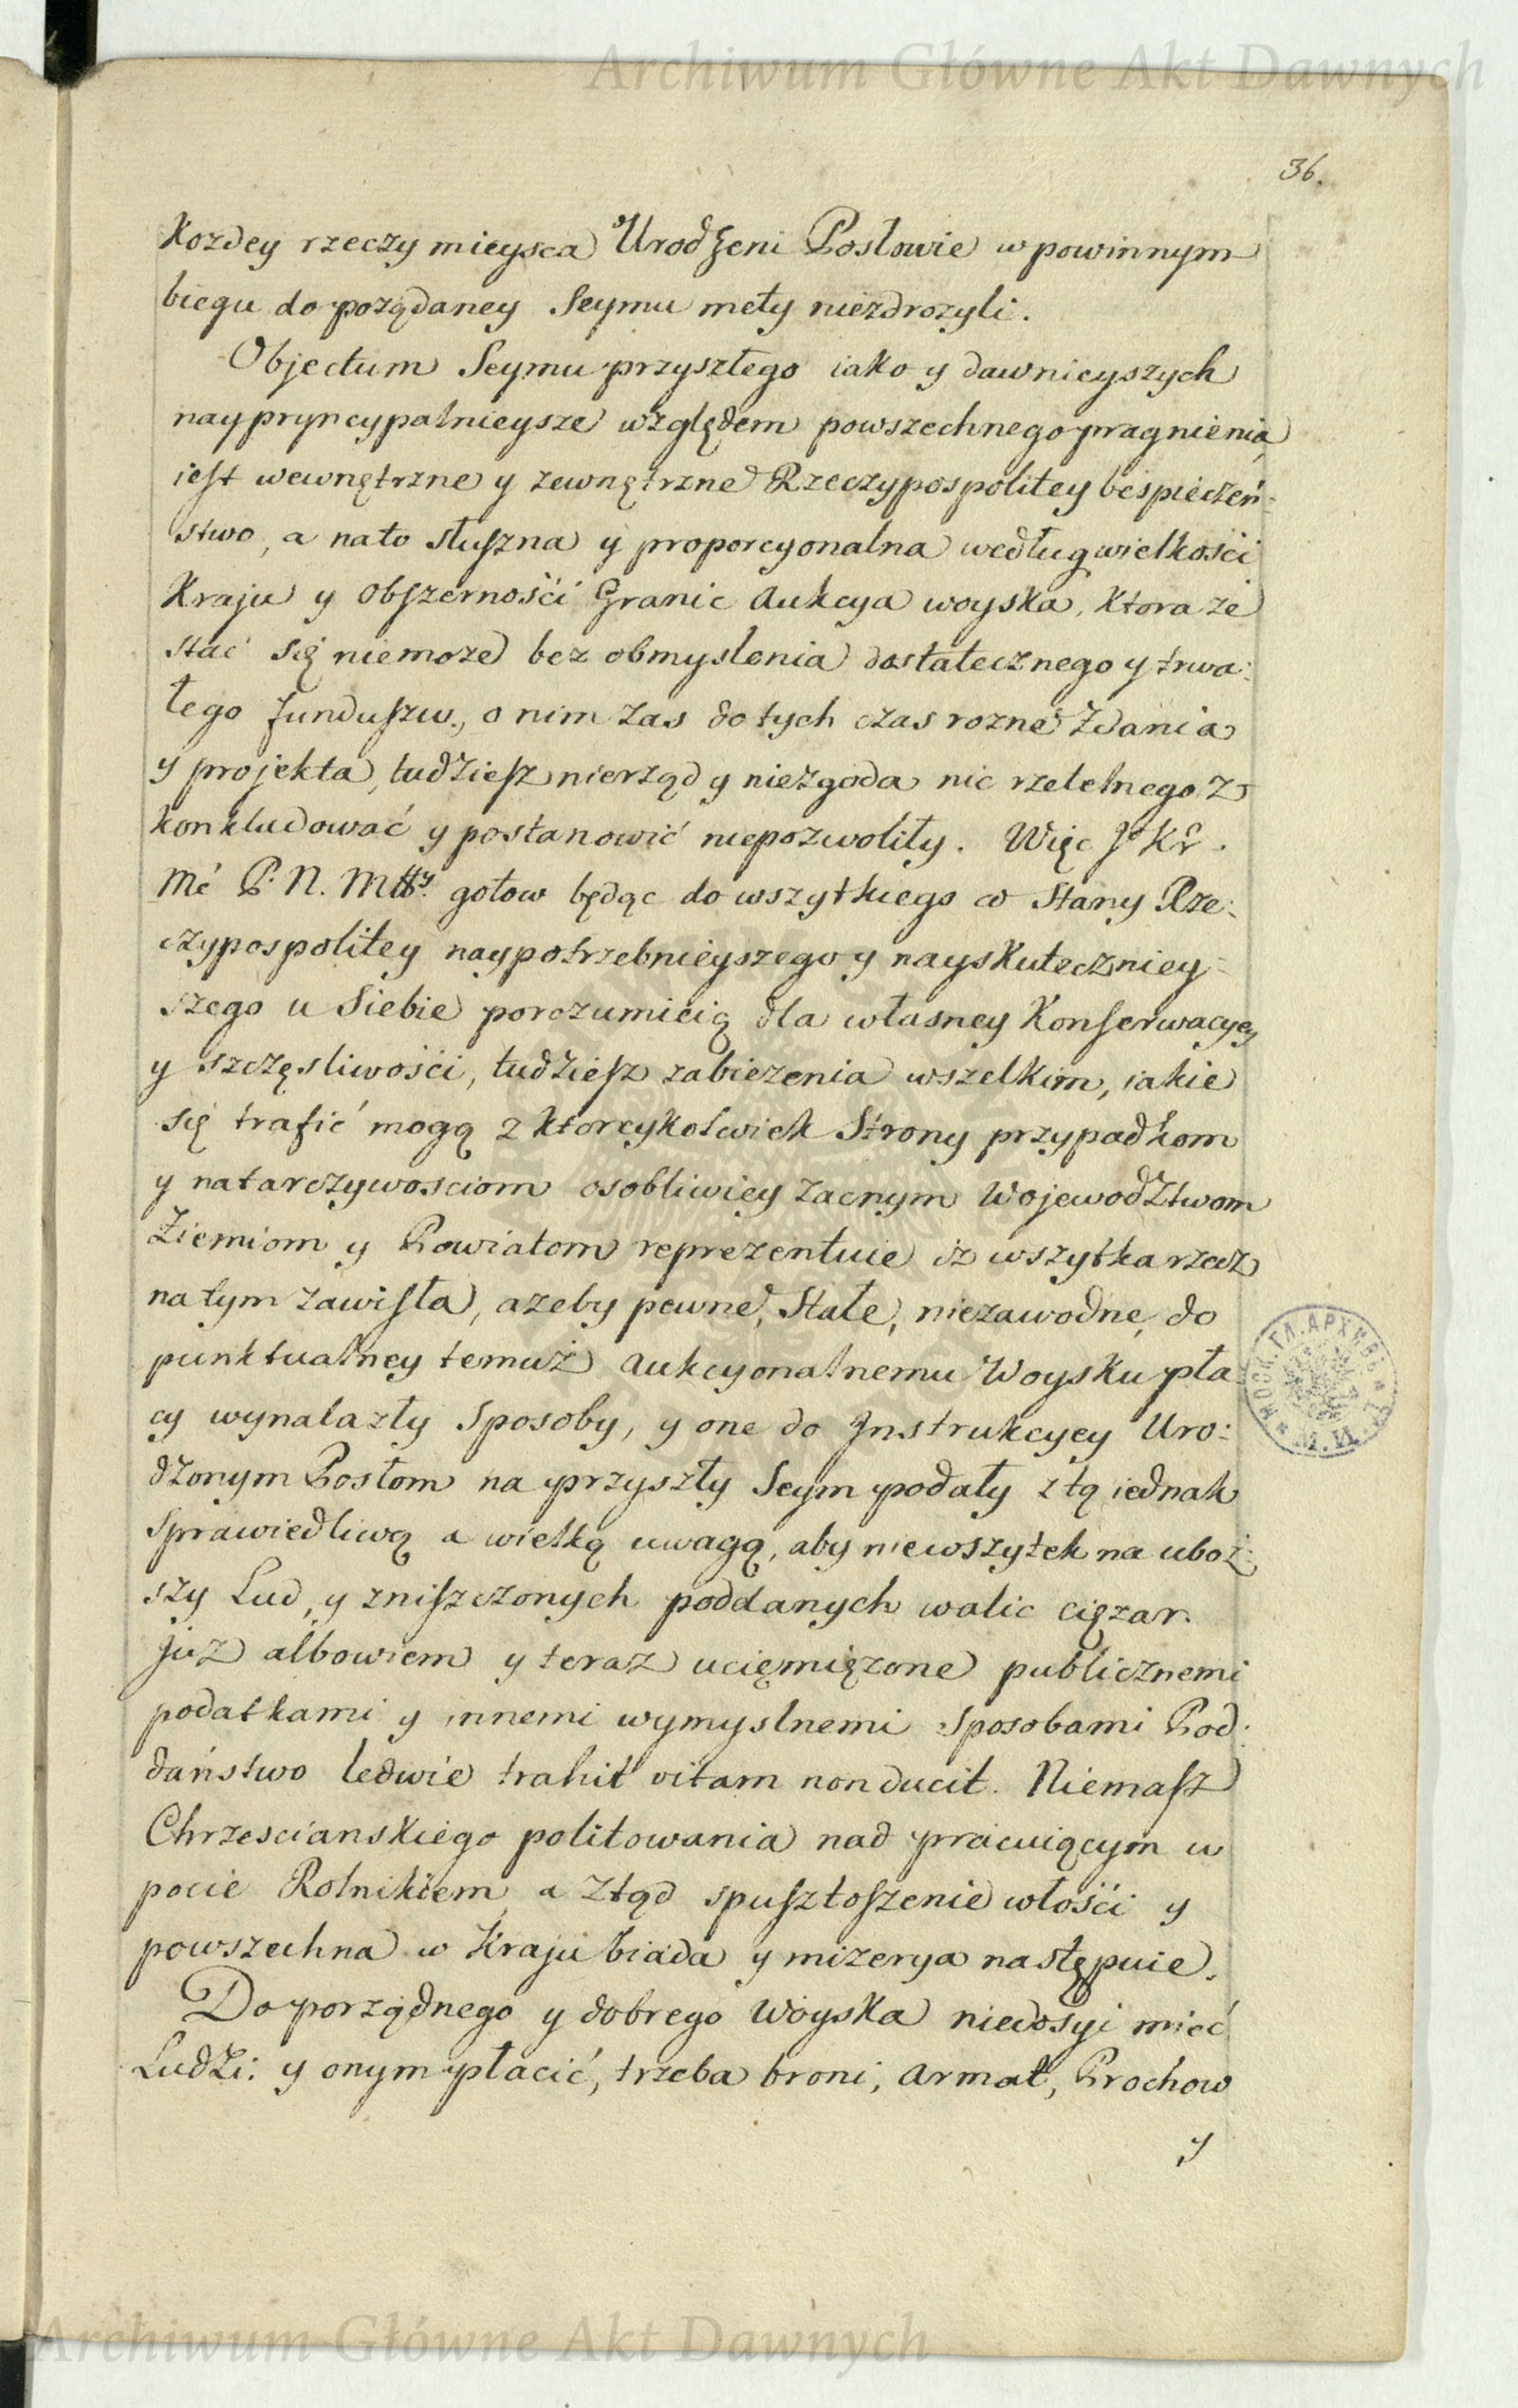 Archiwum Główne Akt Dawnych
36.
Kozdey rzeczy mieysca Urodzeni Posłowie w powinnym
biegu do poządaney Seymu mety niezdrozyli.
Objectum Seymu przyszłego iako y dawnieyszych
naypryncypalnieysze względem powszechnego pragnienia
iest wewnętrzne y zewnętrzne Rzeczypospolitey bespieczeń:
stwo, a nato słuszna y proporcyonalna według wielkości
Kraju y Obszerności Granic Aukcya woyska, Ktora ze
stać się niemoze bez obmyslenia dostatecznego y trwa:
łego funduszu, o nim zas do tych czas rozne zdania
y projekta, tudziesz nierząd y niezgoda nic rzetelnego z
konkludować y postanowić niepozwoliły. Więc Jo Kr.
Mć P. N. Młł. gotow będąc do wszytkiego co Stany Rze:
czypospolitey naypotrzebnieyszego y nayskuteczniey:
szego u Siebie porozumieią dla własney Konserwacyey
y szczęsliwości, tudziesz zabiezenia wszelkim, iakie
się trafić mogą z ktoreykolwiek Strony przypadkom
y natarczywosciom osobliwiey zacnym Wojewodztwom
Ziemiom y Powiatom reprezentuie iz wszytka rzecz
na tym zawisła, azeby pewne, Stałe, niezawodne, do
punktualney temuż Aukcyonalnemu Woysku pła:
cy wynalazły Sposoby, y one do Jnstrukcyey Uro:
dzonym Posłom na przyszły Seym podały z tą iednak
Sprawiedliwą a wielką uwagą, aby niewszytek na uboż:
szy Lud, y zniszczonych poddanych walic cięzar.
już albowiem y teraz uciemięzone publicznemi
podatkami y innemi wymyslnemi Sposobami Pod:
daństwo ledwie trahit vitam non ducit. Niemasz
Chrzescianskiego politowania nad pracuiącym w
pocie Rolnikiem, a ztąd spusztoszenie włości y
powszechna w Kraju biada y mizerya następuie.
Do porządnego y dobrego Woyska niedosyi mieć
Ludzi: y onym płacić, trzeba broni, Armat, Prochow
y
МОСК. ГЛ. АРХИВЪ
М.И.Д.
Archiwum Główne Akt Dawnych